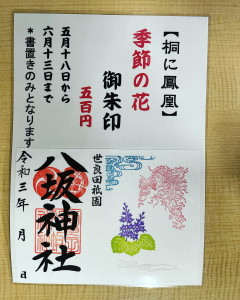 【桐に鳳凰】
季節の花
御朱印
五百円
五月十八日から
六月十三日まで
*書置きのみとなります
世良田祇園
八坂神社
令和三年 月 日